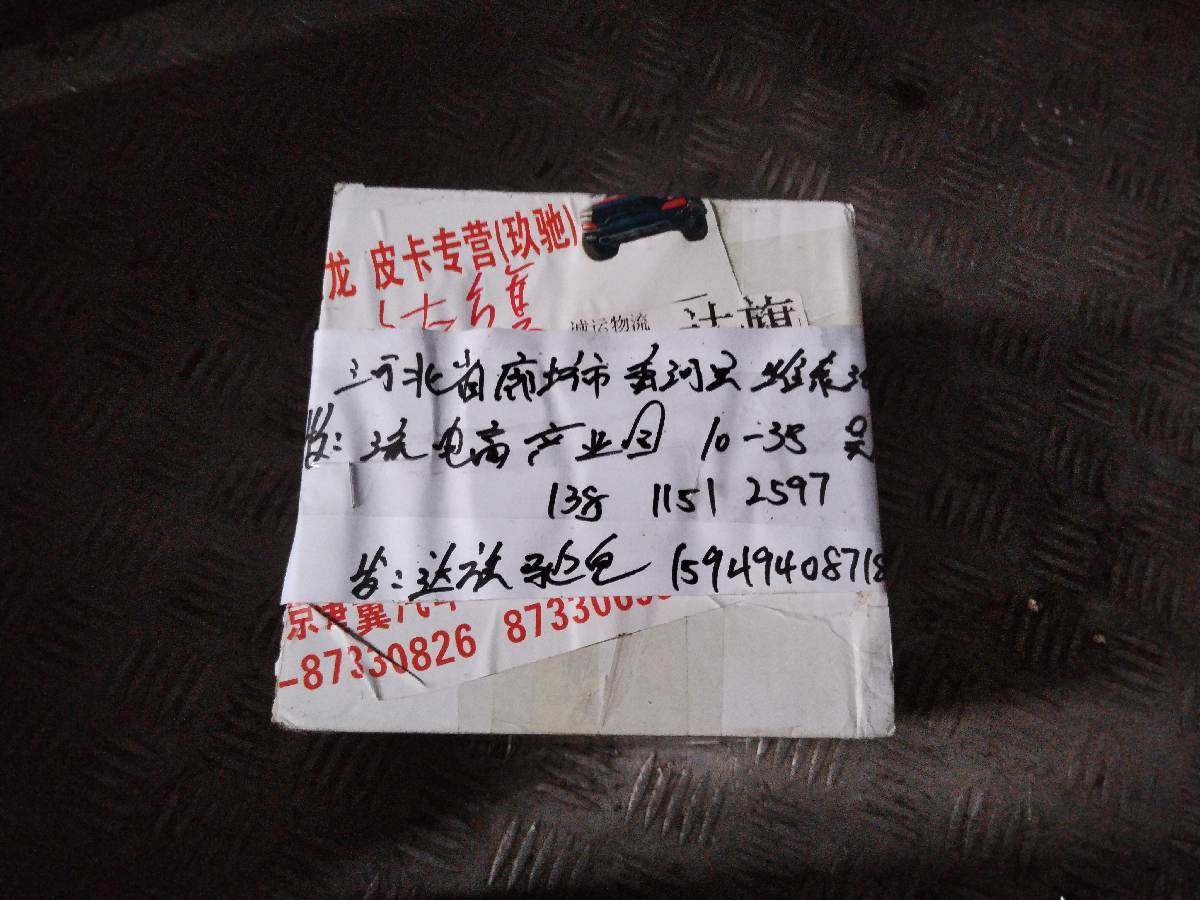 龙 皮卡专营(玖驰)
诚运物流
达旗
河北省廊坊市香河县
收: 流电商产业园 10-35 吴
138 1151 2597
发: 达旗 15949408718
京津冀汽
-87330826 873306